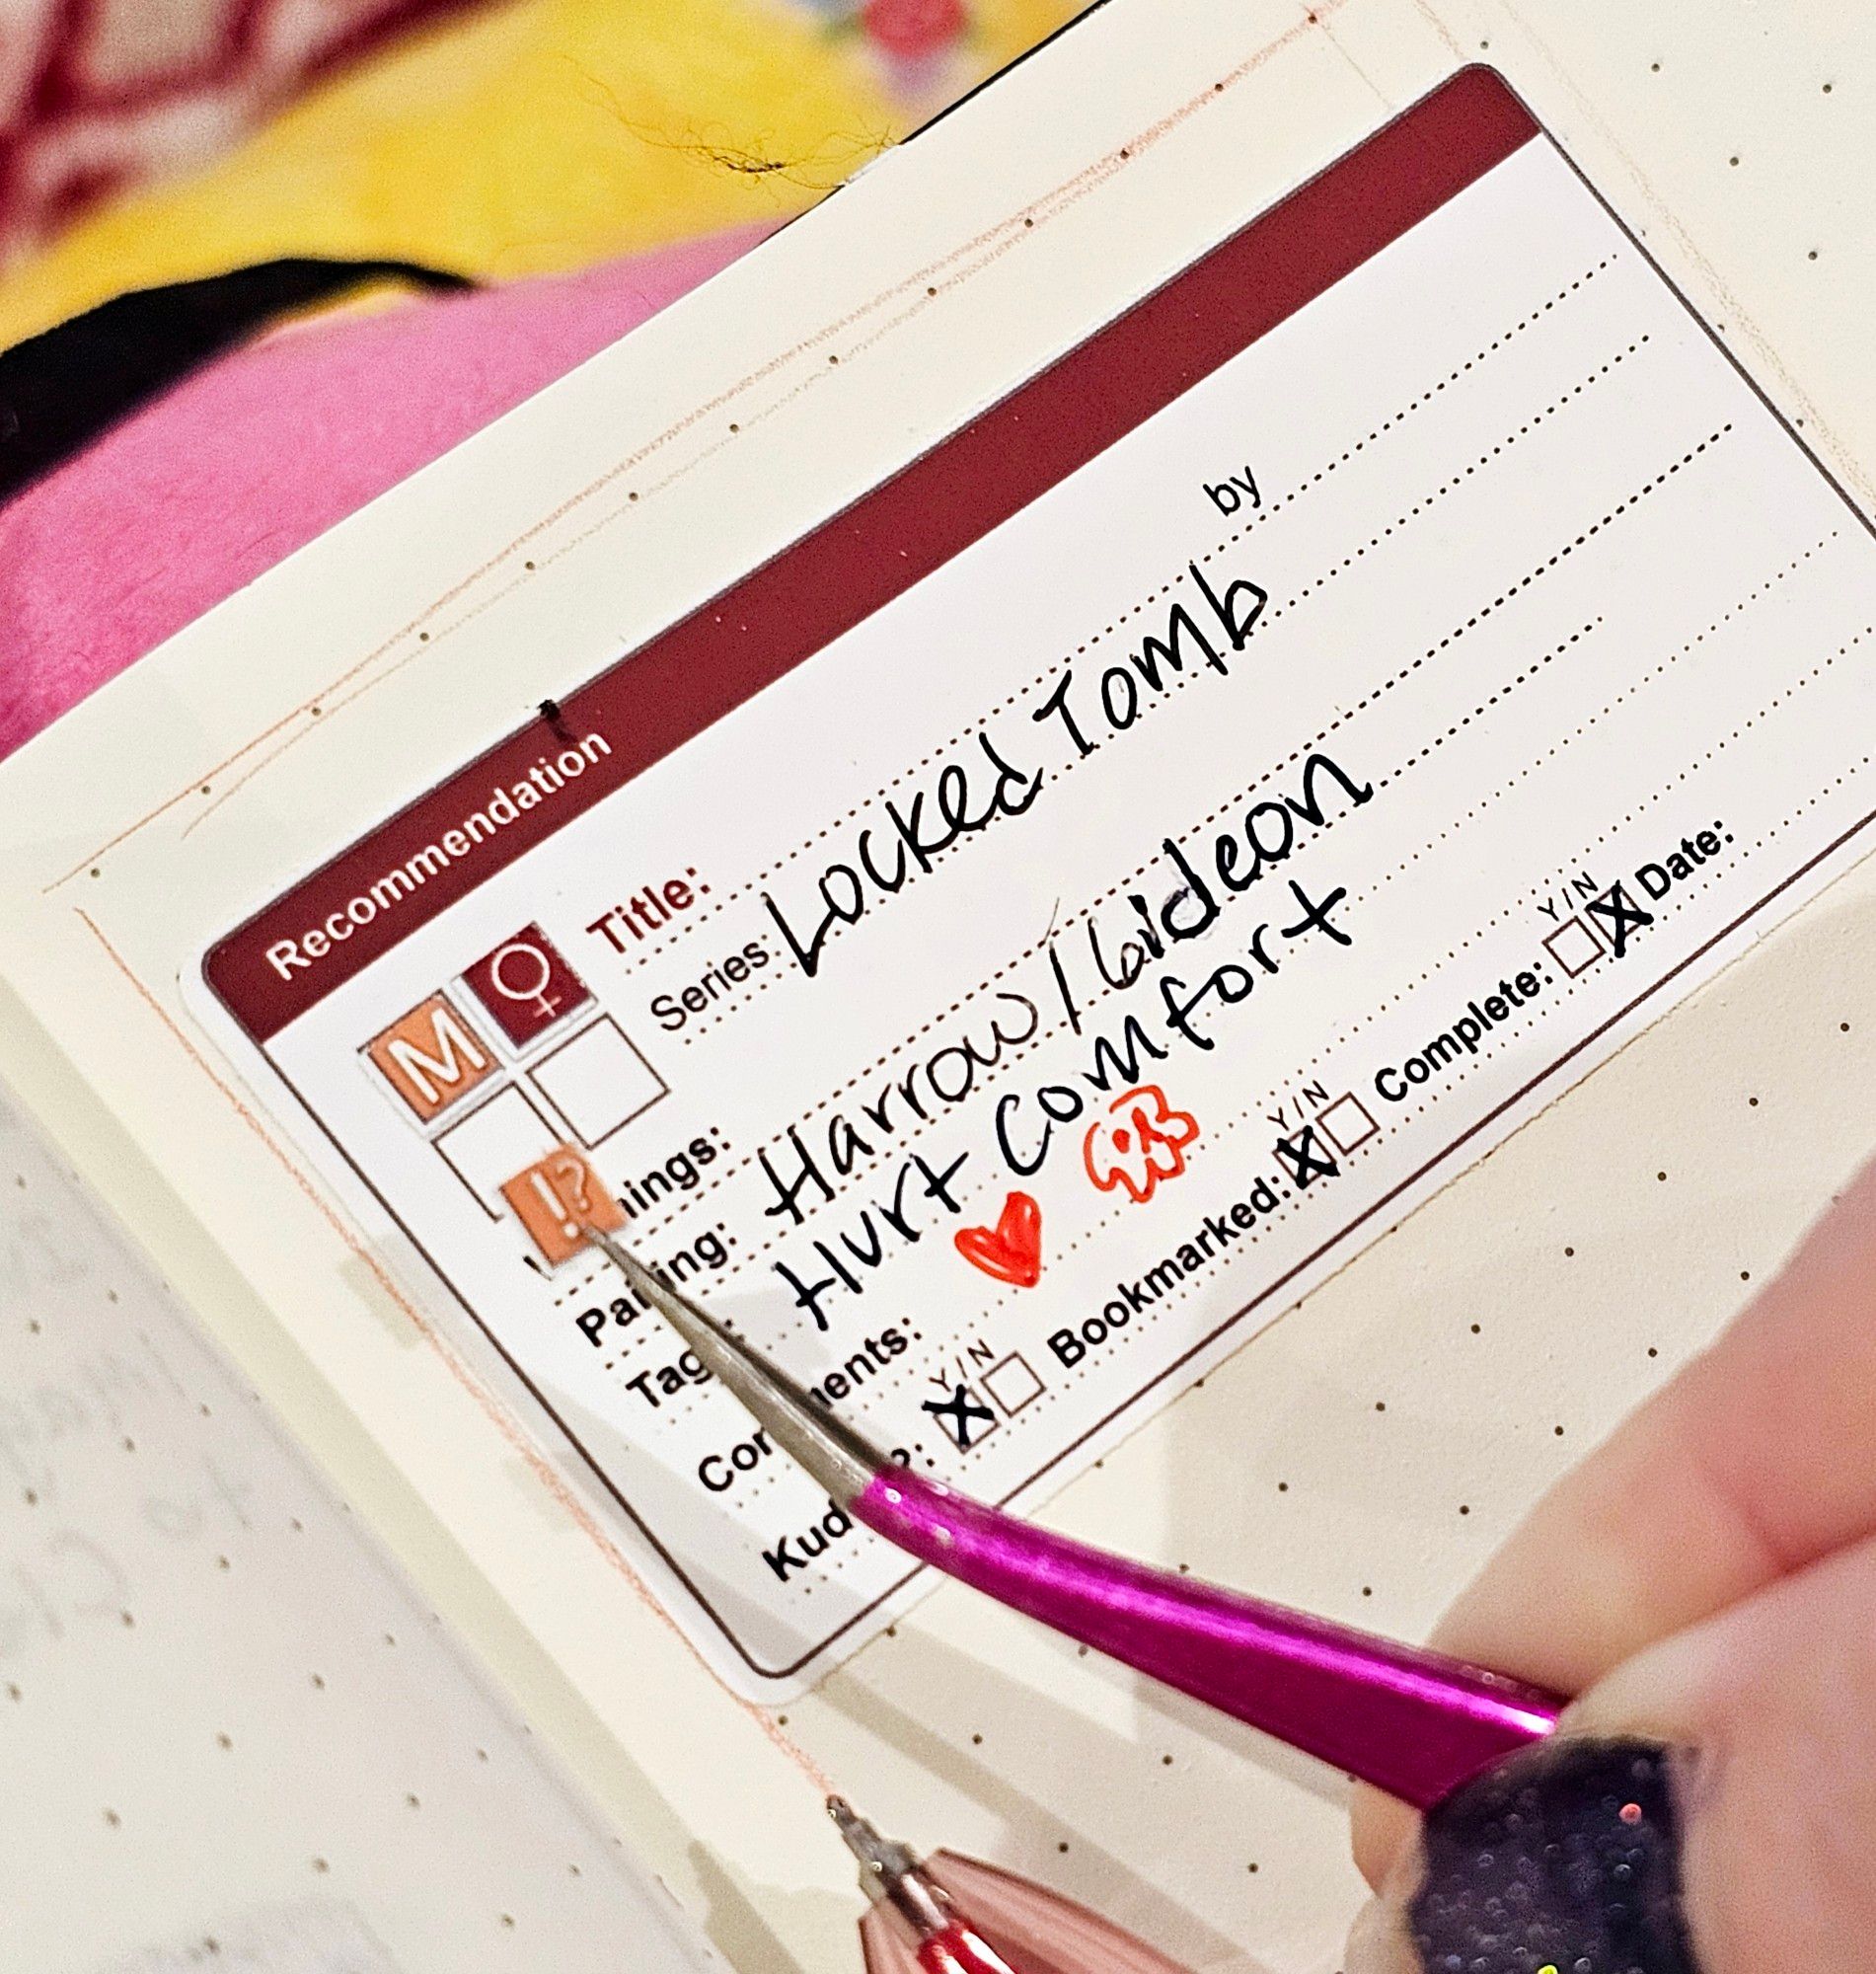 Recommendation
M ♀
Title: by
Series: Locked Tomb
!? nings:
Pairing: Harrow/Gideon
Tags: Hurt Comfort
Comments: ♥
Kudos?: Y/N X Bookmarked: Y/N X Complete: Y/N X Date: